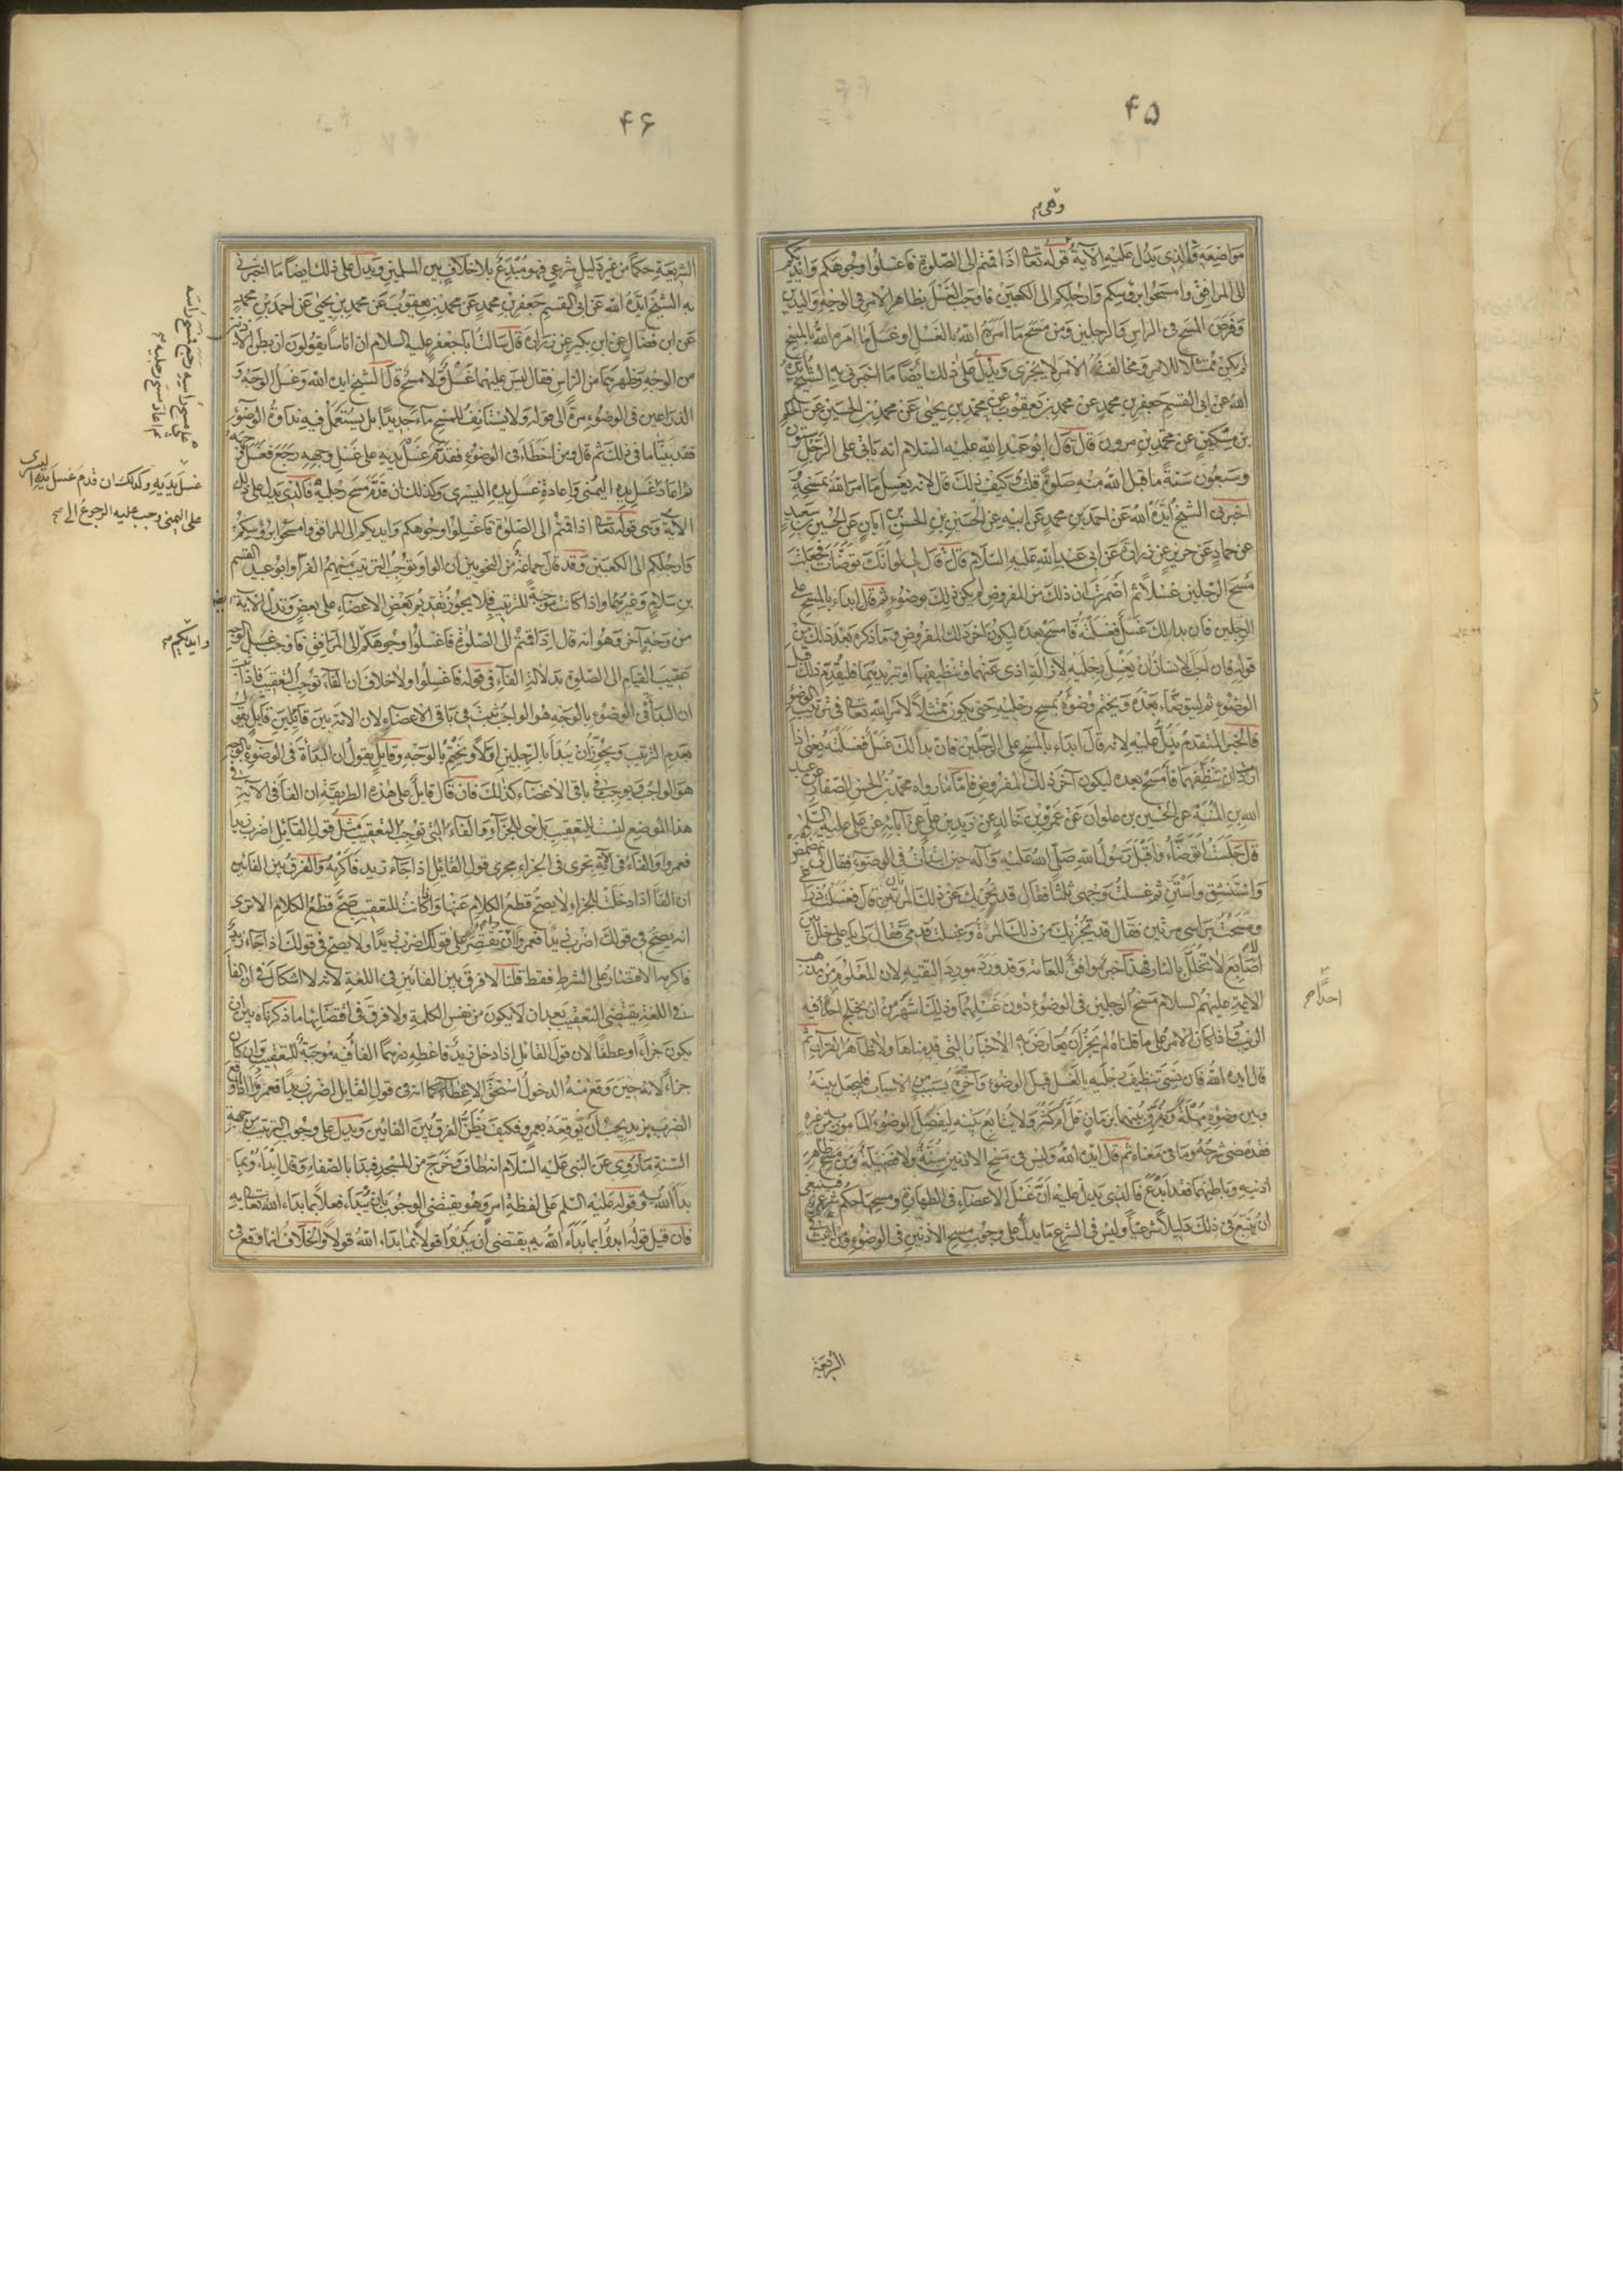 ۴۵
وهی م
مواضیعه فالذی یدل علیه الآیة قوله تعا اذا قمتم الی الصلوة فاغسلوا وجوهکم وایدیکم
الی المرافق وامسحوا برؤسکم وارجلکم الی الکعبین فاوجب الغسل بظاهر الامر فی الوجه والیدین
وفرض المسح فی الراس والرجلین ومن مسح ما امره الله بالغسل او غسل ما امره الله بالمسح
لم یکن ممتثلا للامر ومخالفة الامر لا یجزی ویدل علی ذلک ایضا ما اخبرنی به الشیخ ایده
الله عن ابی القسم جعفر بن محمد عن محمد بن یعقوب عن محمد بن یحیی عن محمد بن الحسین عن الحکم
بن مسکین عن محمد بن مروان قال قال ابو عبد الله علیه السلام انه یاتی علی الرجل ستون
وسبعون سنة ما قبل الله منه صلوة قلت وکیف ذلک قال لانه یغسل ما امر الله بمسحه و
اخبرنی الشیخ ایده الله عن احمد بن محمد عن ابیه عن الحسین بن الحسن بن ابان عن الحسین بن سعید
عن حماد عن حریز عن زرارة عن ابی عبد الله علیه السلام قال قال لی لو انک توضات فجعلت
مسح الرجلین غسلا ثم اضمرت ان ذلک من المفروض لم یکن ذلک بوضوء ثم قال ابداء بالمسح علی
الرجلین فان بدا لک غسل فغسلته فامسح بعده لیکون آخر ذلک المفروض وما ذکره بعد ذلک من
قوله فان احب الانسان ان یغسل رجلیه لازالة اذی عنهما او تنظیفهما او تبریدهما فلیقدم ذلک قبل
الوضوء ثم لیتوضاء بعده ویختم وضوءه بمسح رجلیه حتی یکون ممتثلا لامر الله تعا فی ترتیب الوضوء
فالخبر المتقدم یدل علیه لانه قال ابداء بالمسح علی الرجلین فان بدا لک غسل فغسلته یعنی اذا
اردت ان تنظفهما فامسح بعده لیکون آخر ذلک المفروض فاما ما رواه محمد بن الحسن الصفار عن عبید
الله بن المنبه عن الحسین بن علوان عن عمرو بن خالد عن زید بن علی عن آبائه عن علی علیه السلم
قال جلست اتوضاء واقبل رسول الله صلی الله علیه وآله حین ابتدات فی الوضوء فقال لی تمضمض
واستنشق واستن ثم غسلت وجهی ثلثا فقال قد یجزیک من ذلک المرتان قال فغسلت ذراعی
ومسحت براسی مرتین فقال قد یجزیک من ذلک المرة وغسلت قدمی فقال لی یا علی خلل بین
اصابع لا تخلل بالنار فهذا خبر موافق للعامة وقد ورد مورد التقیه لان المعلوم من مذهب
الائمة علیهم السلام مسح الرجلین فی الوضوء دون غسلهما وذلک اشهر من ان یختلج فیه
احدا م
الریب واذا کان الامر علی ما قلناه لم یجز ان یعارض به الاخبار التی قدمناها ولا ظاهر القرآن ثم
قال ایده الله فان نسی تنظیف رجلیه بالغسل قبل الوضوء واخره لسبب من الاسباب فلیجعل بینه
وبین وضوءه مهلة ویفرق بینهما بزمان قل ام کثر ولا یتابع بینه لیفصل الوضوء المامور به من غیره
فقد مضی شرحه وما فی معناه ثم قال ایده الله ولیس فی مسح الاذنین سنة ولا فضیلة ومن مسح ظاهر
اذنیه وباطنهما فقد ابدع فالذی یدل علیه ان غسل الاعضاء فی الطهارة ومسحها حکم شرعی فینبغی
ان یتبع فی ذلک دلیلا شرعیا ولیس فی الشرع ما یدل علی وجوب مسح الاذنین فی الوضوء ومن اثبت فی
الشریعة
۴۶
الشریعة حکما من غیر دلیل شرعی فهو مبدع بلا خلاف بین المسلمین ویدل علی ذلک ایضا ما اخبرنی
به الشیخ ایده الله عن ابی القسم جعفر بن محمد عن محمد بن یعقوب عن محمد بن یحیی عن احمد بن محمد
عن ابن فضال عن ابن بکیر عن زرارة قال سالت ابا جعفر علیه السلام ان اناسا یقولون ان بطن الاذنین
من الوجه وظهرهما من الراس فقال لیس علیهما غسل ولا مسح قال الشیخ ایده الله وغسل الوجه و
الذراعین فی الوضوء مرة الی قوله ولا یستانف للمسح ماء جدیدا بل یستعمل فیه نداوة الوضوء
فقد بینا ما فی ذلک ثم قال ومن اخطاء فی الوضوء فقدم غسل یدیه علی غسل وجهه رجع فغسل وجهه
ثم اعاد غسل یده الیمنی واعادة غسل یده الیسری وکذلک ان قدم مسح رجلیه فالذی یدل علی ذلک
غسل یدیه وکذلک ان قدم غسل یده الیسری
علی الیمنی وجب علیه الرجوع الی م
علی مسح راسه رجع فمسح راسه
ثم اعاد مسح رجلیه م
الآیة وهی قوله تعا اذا قمتم الی الصلوة فاغسلوا وجوهکم وایدیکم الی المرافق وامسحوا برؤسکم
وارجلکم الی الکعبین وقد قال جماعة من النحویین ان الواو توجب الترتیب منهم الفرا وابو عبید القسم
بن سلام وغیرهما واذا کانت موجبة للترتیب فلا یجوز تقدیم بعض الاعضاء علی بعض وتدل الآیة ایضا
من وجه آخر وهو انه قال اذا قمتم الی الصلوة فاغسلوا وجوهکم الی المرافق فاوجب غسل الوجه
وایدیکم م
عقیب القیام الی الصلوة بدلالة الفاء فی قوله فاغسلوا ولا خلاف ان الفاء توجب التعقیب فاذا ثبت
ان البداة فی الوضوء بالوجه هو الواجب ثبت فی باقی الاعضاء لان الامة بین قائلین قایل یقول
بعدم الترتیب ویجوز ان یبدا بالرجلین اولا ویختم بالوجه وقایل یقول ان البداة فی الوضوء بالوجه
هو الواجب ویوجب فی باقی الاعضاء کذلک فان قال قایل علی هذه الطریقة ان الفا فی الآیة فی
هذا الموضع لیست للتعقیب بل هی للجزاء والفاء التی توجب التعقیب مثل قول القایل اضرب زیدا
فعمروا والفاء فی الآیة تجری فی الجزاء مجری قول القایل اذا جاء زید فاکرمه والفرق بین الفائین
ان الفا اذا دخلت للجزاء لا یصح قطع الکلام عنها واذا کانت للتعقیب صح قطع الکلام الا تری
انه یصح فی قولک اضرب زیدا فعمروا ان تقتصر علی قولک اضرب زیدا ولا یصح فی قولک اذا جاء زید
فاکرمه الاقتصار علی الشرط فقط قلنا لا فرق بین الفائین فی اللغة لانه لا اشکال فی ان الفا
فی اللغة یقتضی التعقیب بعد ان لا یکون من نفس الکلمة ولا فرق فی اقتضائها ما ذکرناه بین ان
یکون جزاء او عطفا لان قول القائل اذا دخل زید فاعطه درهما الفا فیه موجبة للتعقیب وان کان
جزاء لانه حین وقع منه الدخول استحق الاعطاء کما انه فی قول القایل اضرب زیدا فعمروا اذا اوقع
الضرب بزید یجب ان توقعه بعمرو فکیف تظن الفرق بین الفائین ویدل علی وجوب الترتیب من جهة
السنة ما روی عن النبی علیه السلام انه طاف وخرج من المسجد فبدا بالصفا وقال ابداوا بما
بدا الله به وقوله علیه السلم علی لفظة امر وهو یقتضی الوجوب بان یبداء فعلا بما بداء الله تعا به
فان قیل قوله ابدوا بما بداء الله به یقتضی ان یبدوا قولا بما بداء الله قولا والخلاف انما وقع فی